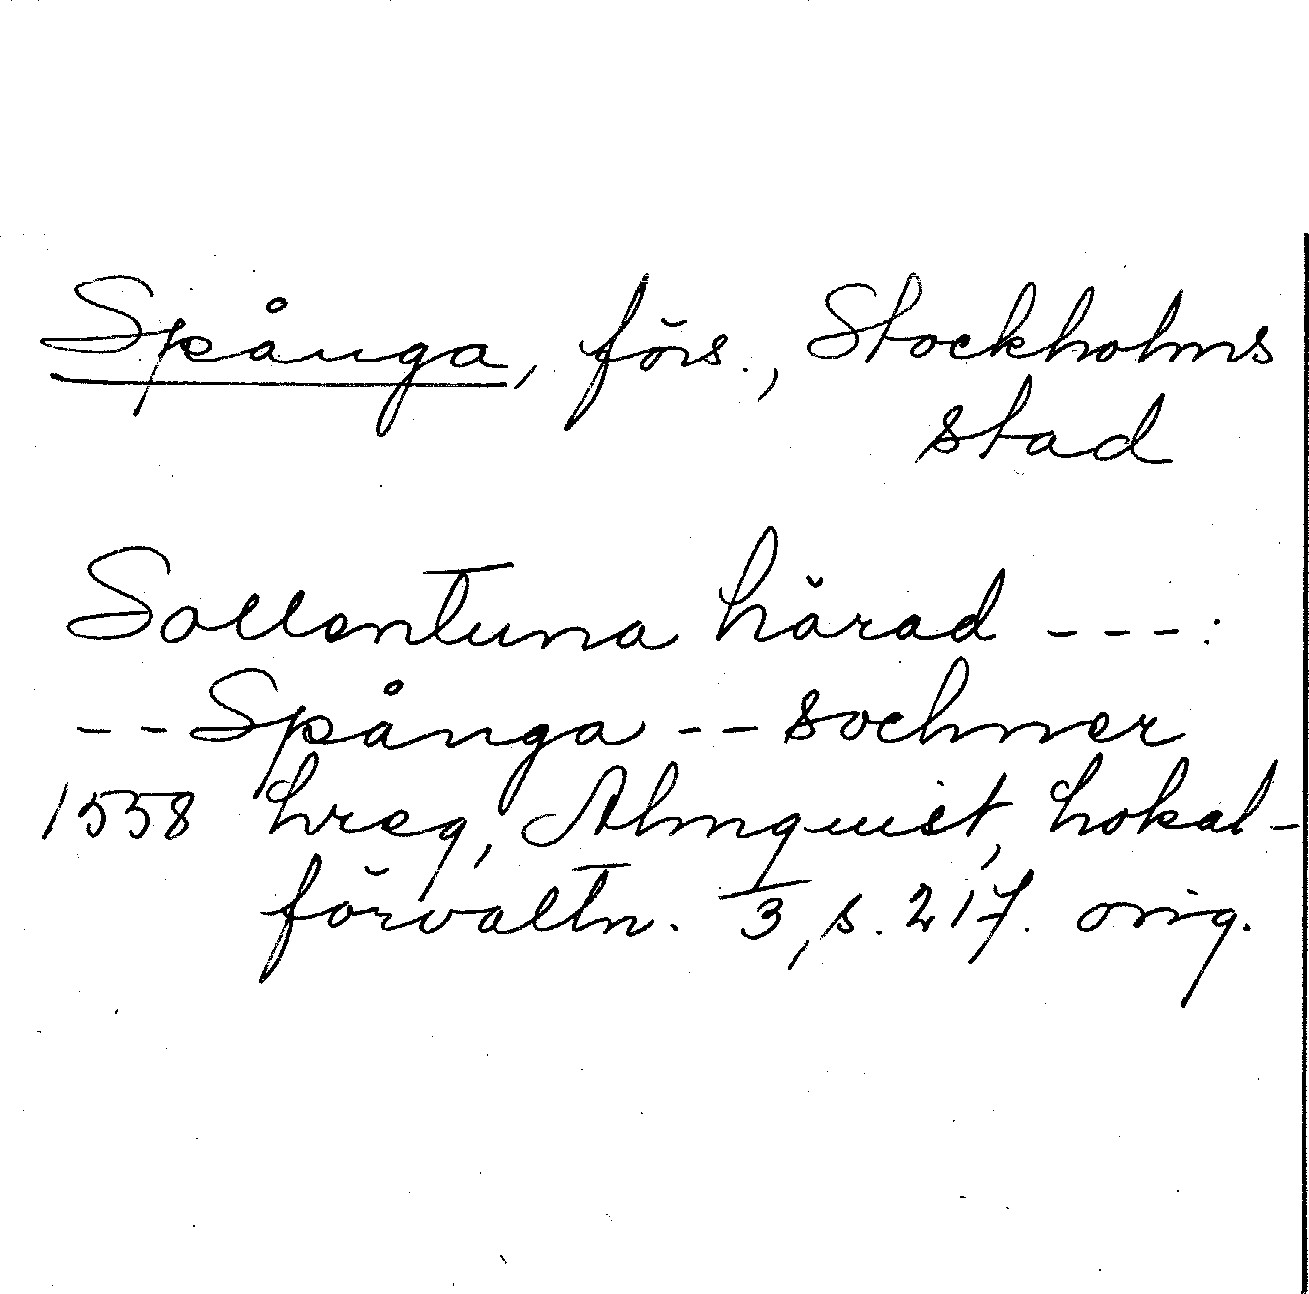 Spånga, förs., Stockholms
stad
Sollentuna härad ---:
--Spånga -- sochner
1558 hreg, Almquist, Lokal-
förvaltn. 3, s. 217. orig.